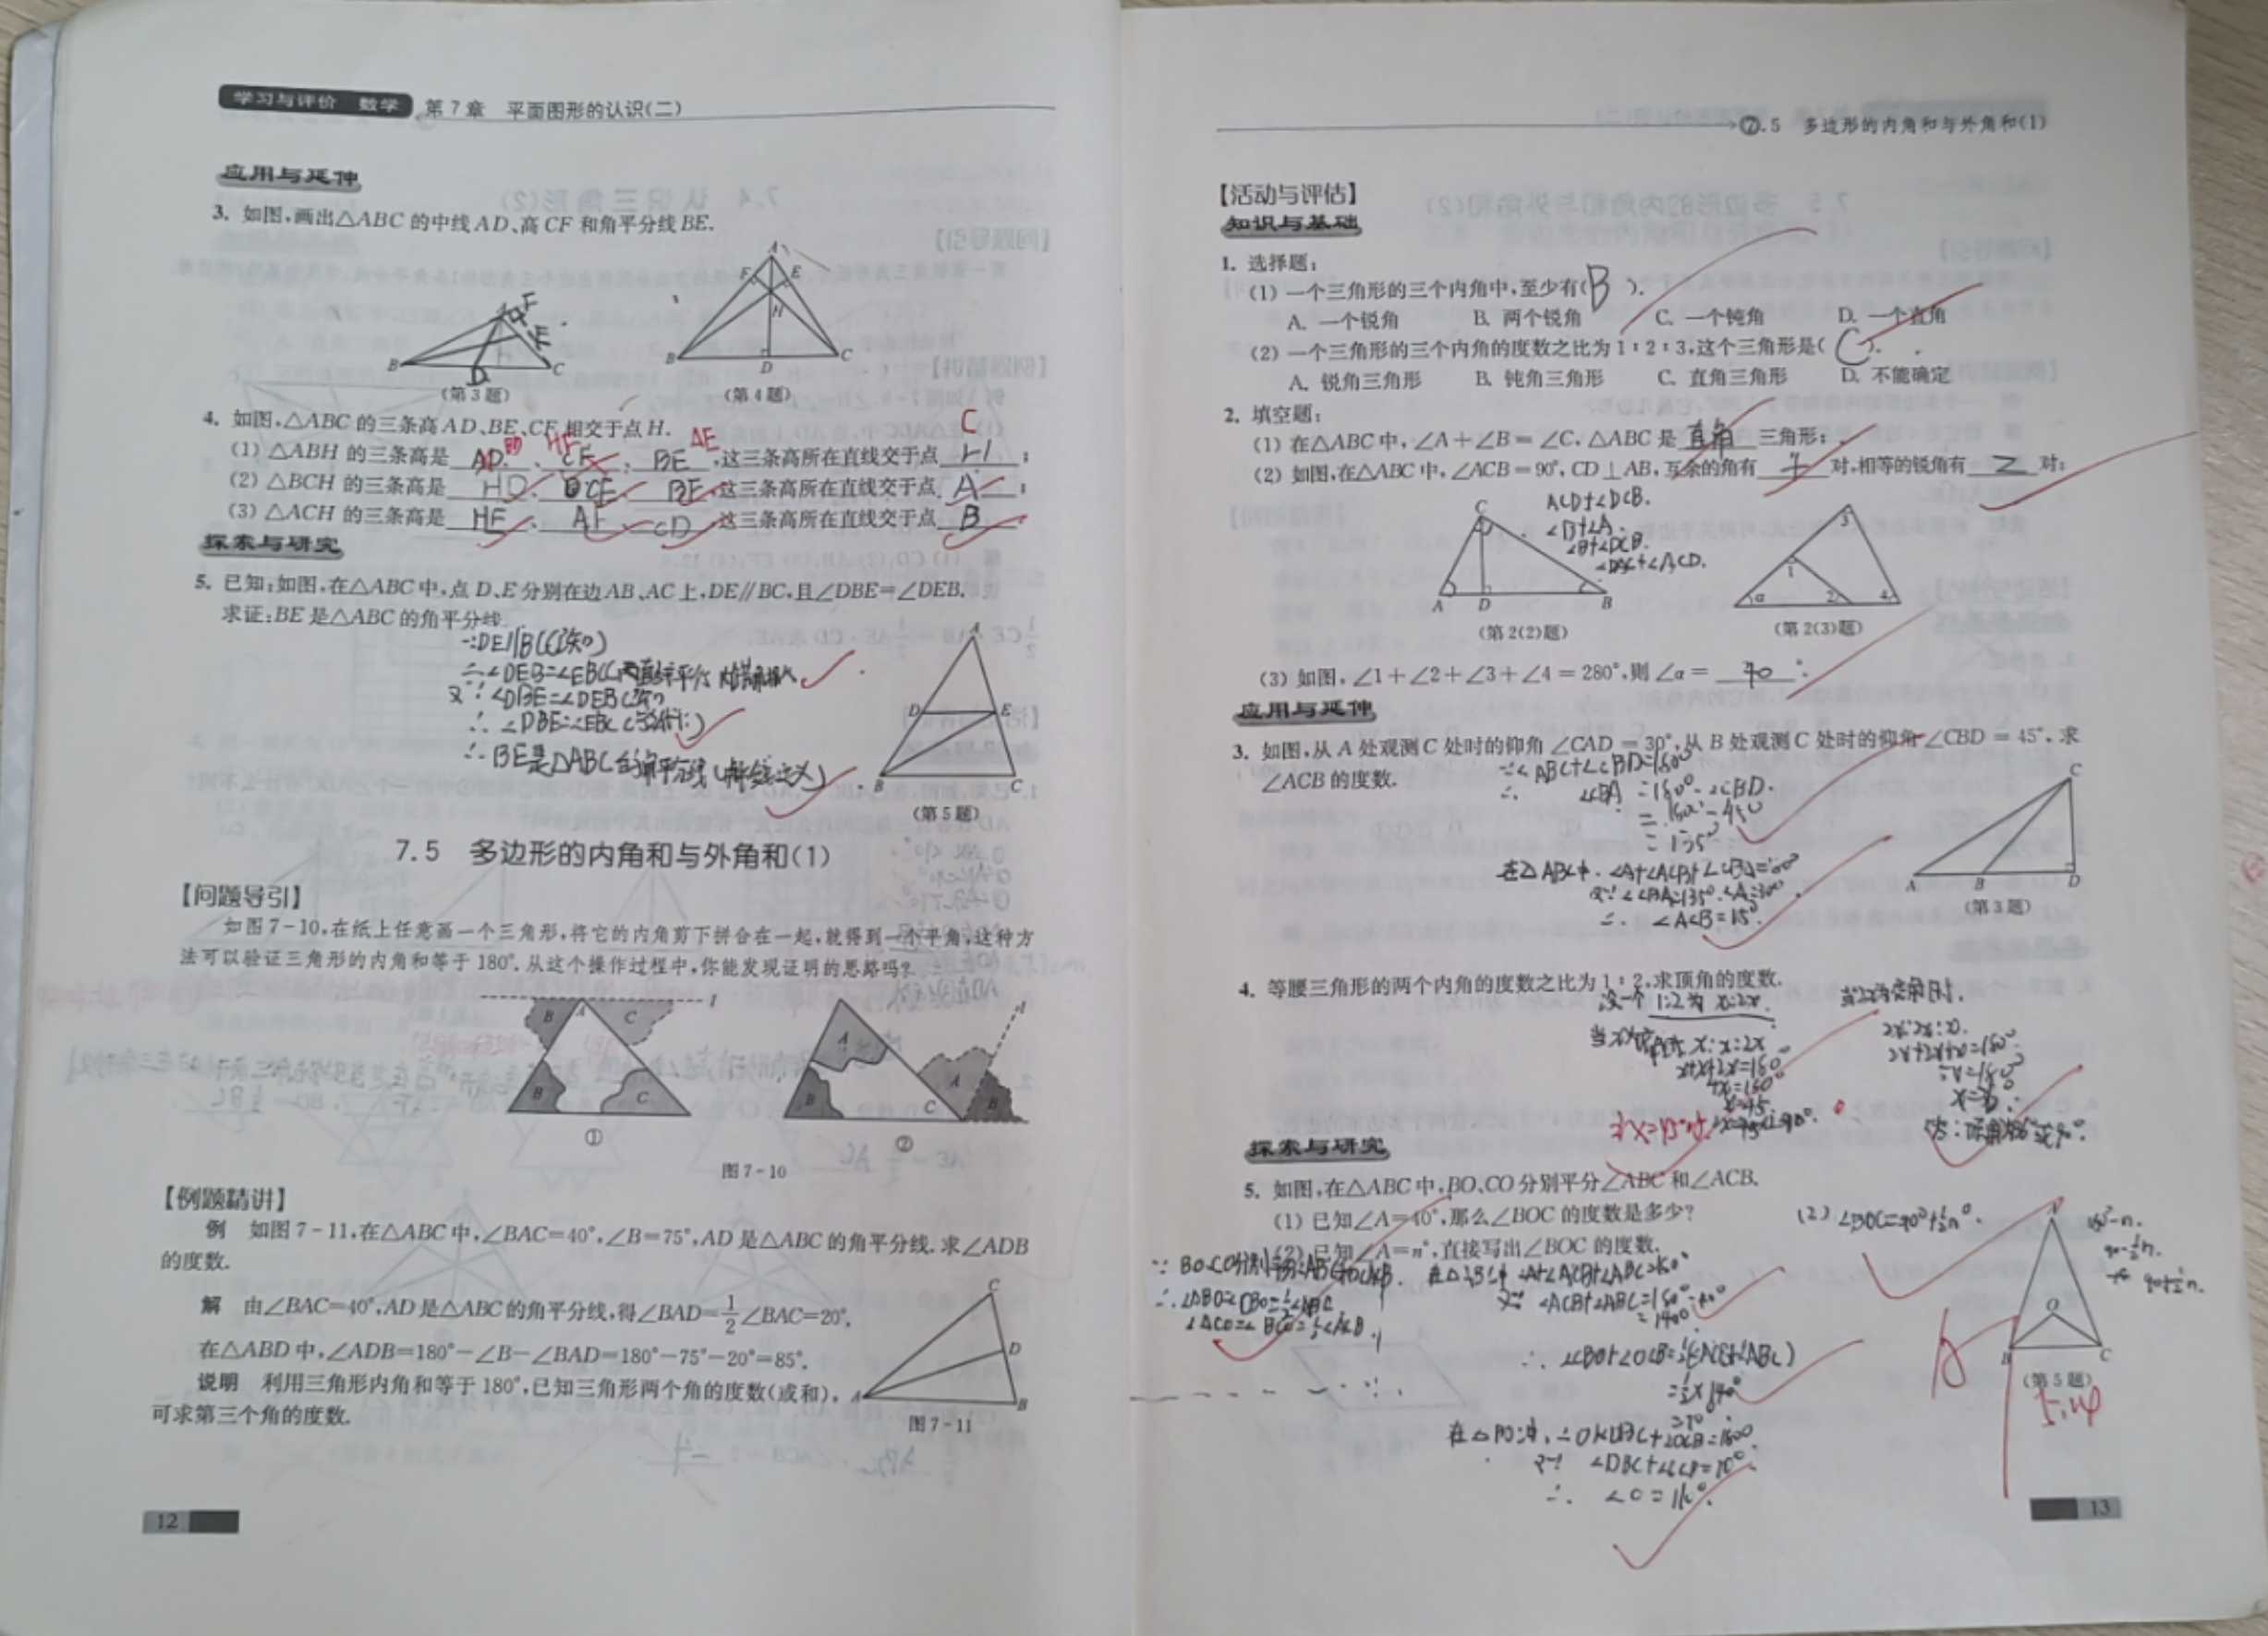 学习与评价 数学 第7章 平面图形的认识(二)
应用与延伸
3. 如图,画出△ABC的中线AD、高CF和角平分线BE.
F
E
B
D
C
(第3题)
A
F
E
H
B
D
C
(第4题)
4. 如图,△ABC的三条高AD、BE、CF相交于点H.
BD HF AE C
(1) △ABH的三条高是 AD 、 CF 、 BE ,这三条高所在直线交于点 H ;
(2) △BCH的三条高是 HD 、 CE 、 BF ,这三条高所在直线交于点 A ;
(3) △ACH的三条高是 HE 、 AF 、 CD ,这三条高所在直线交于点 B
探索与研究
5. 已知:如图,在△ABC中,点D、E分别在边AB、AC上,DE∥BC,且∠DBE=∠DEB.
求证:BE是△ABC的角平分线.
∵DE∥BC(已知)
∴∠DEB=∠EBC(两直线平行,内错角相等)
又∵∠DBE=∠DEB(已知)
∴∠DBE=∠EBC
∴BE是△ABC的角平分线(
A
D
E
B
C
(第5题)
7.5 多边形的内角和与外角和(1)
【问题导引】
如图7-10,在纸上任意画一个三角形,将它的内角剪下拼合在一起,就得到一个平角,这种方
法可以验证三角形的内角和等于180°.从这个操作过程中,你能发现证明的思路吗?
B A C l
B C
①
A
A
B C B
②
图7-10
【例题精讲】
例 如图7-11,在△ABC中,∠BAC=40°,∠B=75°,AD是△ABC的角平分线.求∠ADB
的度数.
解 由∠BAC=40°,AD是△ABC的角平分线,得∠BAD=1/2∠BAC=20°.
在△ABD中,∠ADB=180°-∠B-∠BAD=180°-75°-20°=85°.
说明 利用三角形内角和等于180°,已知三角形两个角的度数(或和),
可求第三个角的度数.
C
D
A
B
图7-11
12
7.5 多边形的内角和与外角和(1)
【活动与评估】
知识与基础
1. 选择题:
(1) 一个三角形的三个内角中,至少有( B ).
A. 一个锐角 B. 两个锐角 C. 一个钝角 D. 一个直角
(2) 一个三角形的三个内角的度数之比为1∶2∶3,这个三角形是( C ).
A. 锐角三角形 B. 钝角三角形 C. 直角三角形 D. 不能确定
2. 填空题:
(1) 在△ABC中,∠A+∠B=∠C,△ABC是 直角 三角形;
(2) 如图,在△ABC中,∠ACB=90°,CD⊥AB,互余的角有 4 对,相等的锐角有 2 对;
ACD+∠DCB.
∠B+∠A.
∠B+∠DCB.
+∠ACD.
C
A D B
(第2(2)题)
3
1
α 2 4
(第2(3)题)
(3) 如图,∠1+∠2+∠3+∠4=280°,则∠α= 40° .
应用与延伸
3. 如图,从A处观测C处时的仰角∠CAD=30°,从B处观测C处时的仰角∠CBD=45°.求
∠ACB的度数.
∵∠ABC+∠CBD=180°
∴ ∠CBA=180°-∠CBD.
=180°-45°
=135°
在△ABC中.∠A+∠ACB+∠CBA=180°
又∵∠CBA=135°.∠A=30°.
∴ ∠ACB=15°.
C
A B D
(第3题)
4. 等腰三角形的两个内角的度数之比为1∶2,求顶角的度数.
1:2为 x:2x.
x:x:2x
x+x+2x=180°
4x=180°
x=45
当2x为底角时.
2x:2x:x.
2x+2x+x=180°
5x=180°
x=36°
答:顶角为36°或90°.
探索与研究
5. 如图,在△ABC中,BO、CO分别平分∠ABC和∠ACB.
(1) 已知∠A=40°,那么∠BOC的度数是多少?
(2) 已知∠A=n°,直接写出∠BOC的度数.
(2) ∠BOC=90°+½n°.
180-n.
90-½n.
90+½n.
∵BO.CO分别平分∠ABC和∠ACB.
∴∠ABO=∠CBO=½∠ABC
∠ACO=∠BCO=½∠ACB.
在△ABC中 ∠A+∠ACB+∠ABC=180°
又∵ ∠ACB+∠ABC=180°-40°
=140°
=½×140°
=70°
∴ ∠O=110°.
A
O
B C
(第5题)
A
5.14
13